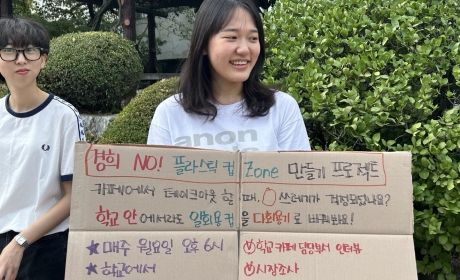 anon
경희 NO! 플라스틱 컵 Zone 만들기 프로젝트
카페에서 테이크아웃 할 때, 쓰레기가 걱정되나요?
학교 안에서라도 일회용컵을 다회용기로 바꿔봐요!
★ 매주 월요일 오후 6시
★ 학교에서
학교 카페 담당부서 인터뷰
시장조사